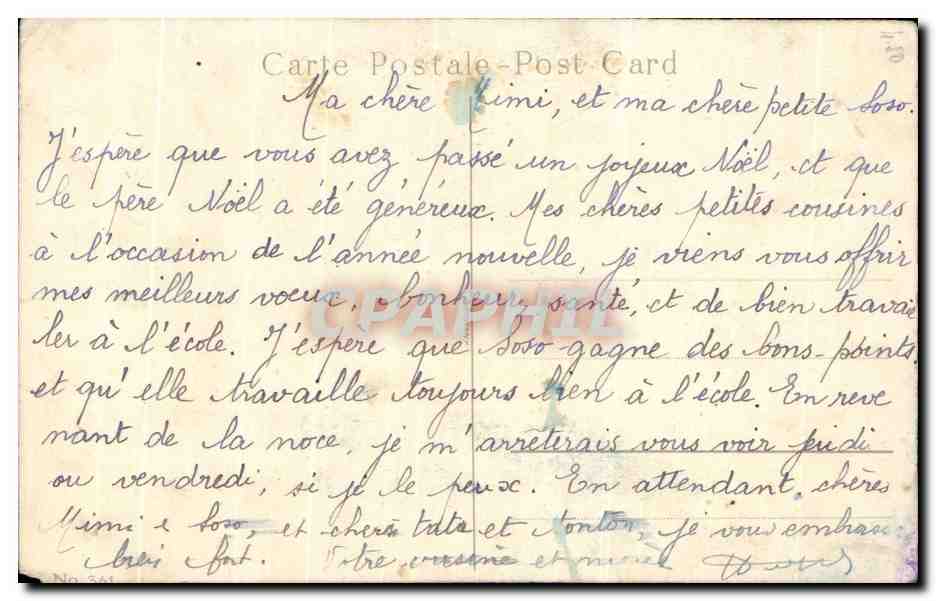 Carte Postale - Post Card
Ma chère Mimi, et ma chère petite Soso.
J'espère que vous avez passé un joyeux Noël, et que
le père Noël a été généreux. Mes chères petites cousines
à l'occasion de l'année nouvelle, je viens vous offrir
mes meilleurs voeux, bonheur, santé, et de bien travail
CPAPHIL
ler à l'école. J'espère que Soso gagne des bons-points,
et qu'elle travaille toujours bien à l'école. En reve
nant de la noce, je m'arrêterais vous voir jeudi
ou vendredi, si je le peux. En attendant, chères
Mimi e Soso, et chers tata et tonton, je vous embrasse
bien fort. Votre cousine et
No 361